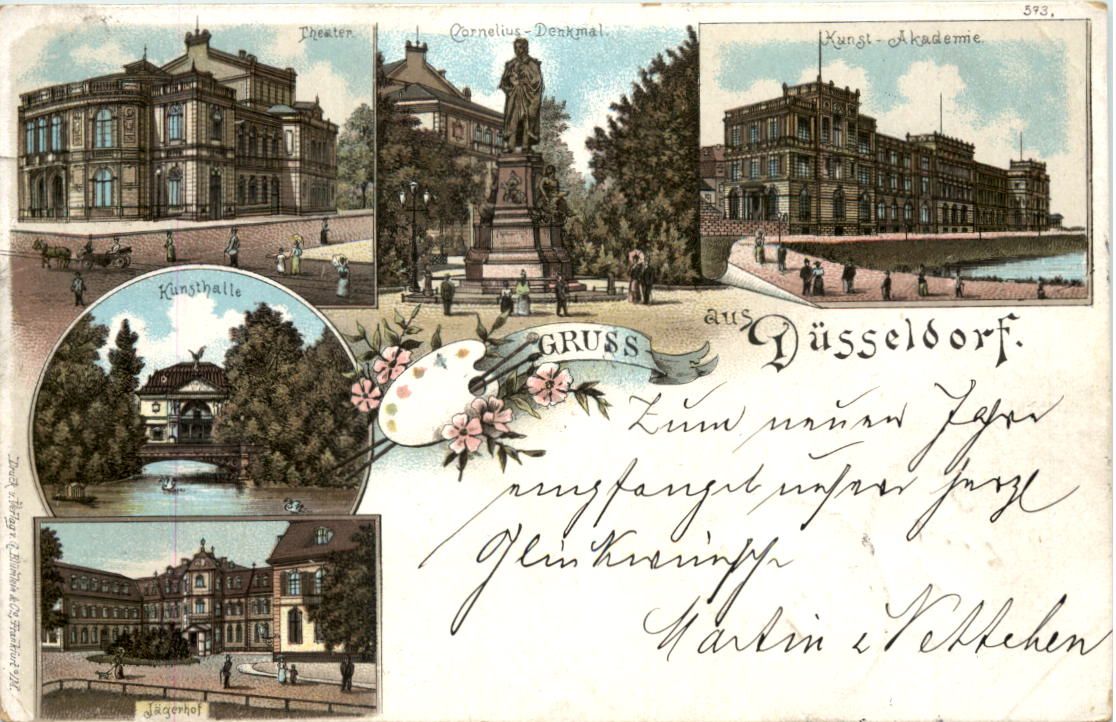 573.
Theater.
Cornelius-Denkmal.
Kunst-Akademie.
Kunsthalle
GRUSS
aus Düsseldorf.
Zum neuen Jahre
empfanget unsere herzl
Glückwünsche
Martin & Nettchen
Jägerhof
Druck u. Verlag v. J. Miesler & Co. Frankfurt a/M.